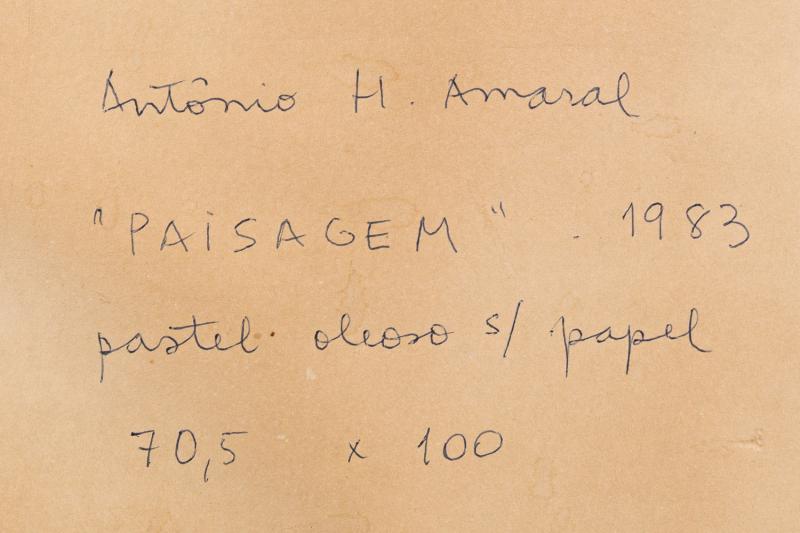 Antônio H. Amaral
"PAiSAGEM" . 1983
pastel oleoso s/ papel
70,5 x 100